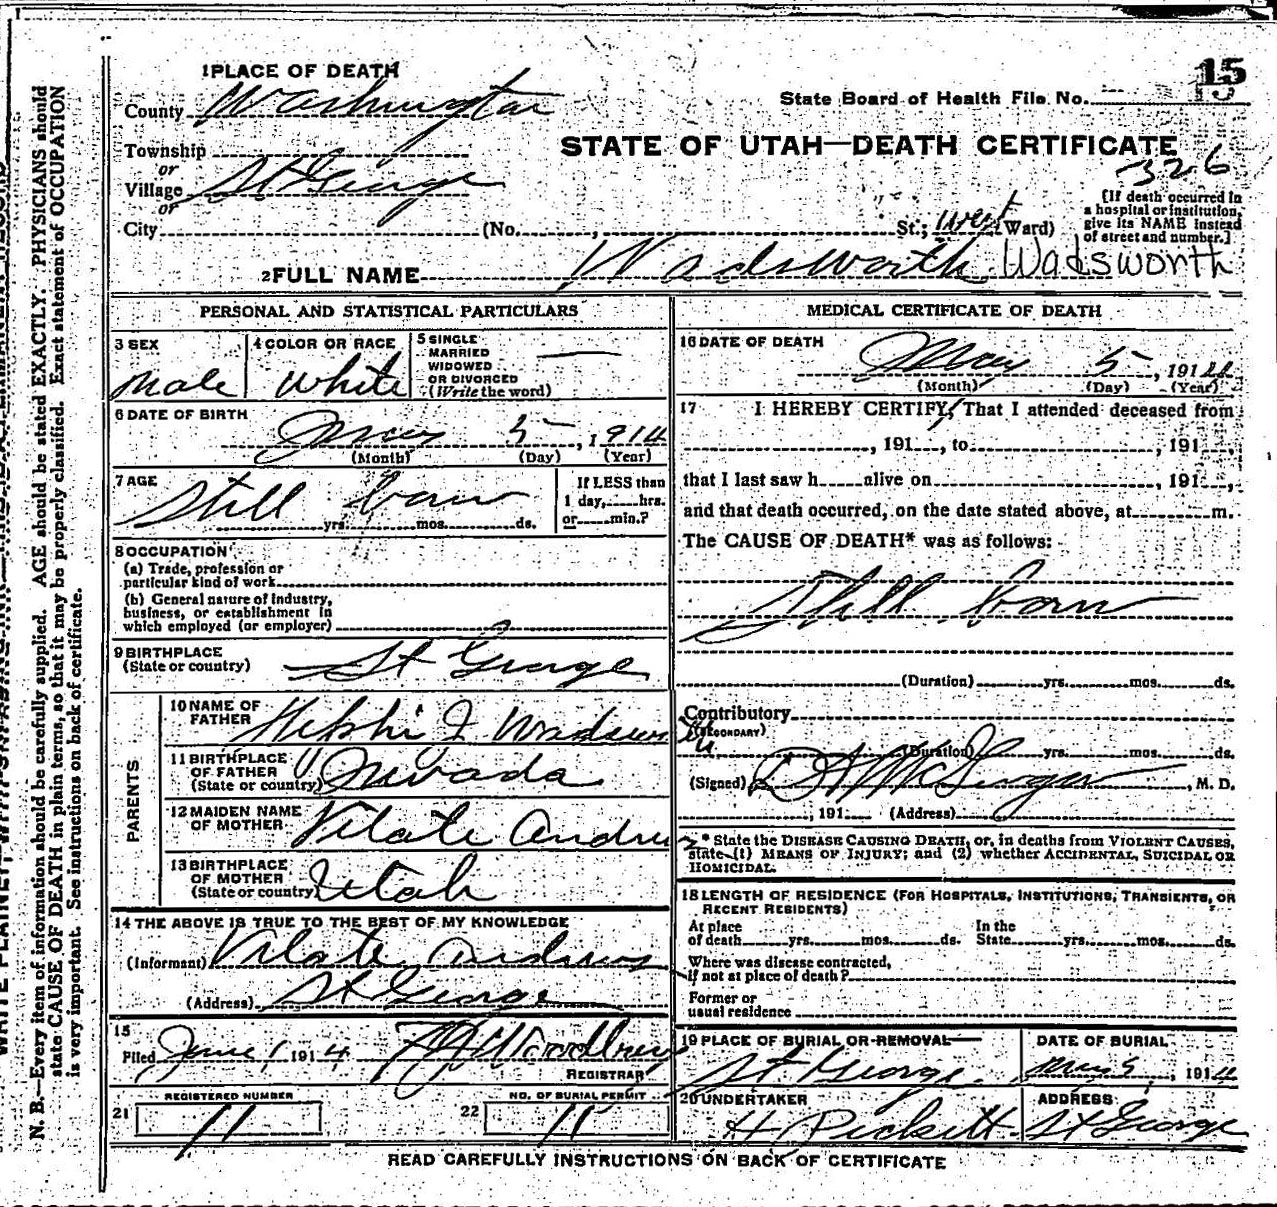 N. B.—Every item of information should be carefully supplied. AGE should be stated EXACTLY. PHYSICIANS should
state CAUSE OF DEATH in plain terms, so that it may be properly classified. Exact statement of OCCUPATION
is very important. See instructions on back of certificate.
15
1 PLACE OF DEATH
County Washington
State Board of Health File No.
STATE OF UTAH—DEATH CERTIFICATE
326
Township
or
Village St George
or
City (No. , St.; West Ward)
[If death occurred in
a hospital or institution,
give its NAME instead
of street and number.]
2 FULL NAME Wadsworth Wadsworth
PERSONAL AND STATISTICAL PARTICULARS
3 SEX
male
4 COLOR OR RACE
White
5 SINGLE
MARRIED
WIDOWED
OR DIVORCED
(Write the word)
6 DATE OF BIRTH
May 5, 1914
(Month) (Day) (Year)
7 AGE
Still born
yrs. mos. ds.
If LESS than
1 day, hrs.
or min.?
8 OCCUPATION
(a) Trade, profession or
particular kind of work
(b) General nature of industry,
business, or establishment in
which employed (or employer)
9 BIRTHPLACE
(State or country) St George
PARENTS
10 NAME OF
FATHER Nephi J Wadsworth
11 BIRTHPLACE
OF FATHER
(State or country) Nevada
12 MAIDEN NAME
OF MOTHER Vilate Andrus
13 BIRTHPLACE
OF MOTHER
(State or country) Utah
14 THE ABOVE IS TRUE TO THE BEST OF MY KNOWLEDGE
(Informant) Vilate Andrus
(Address) St George
15
Filed June 1, 1914
REGISTRAR
REGISTERED NUMBER
21 11
NO. OF BURIAL PERMIT
22 11
MEDICAL CERTIFICATE OF DEATH
16 DATE OF DEATH
May 5, 1914
(Month) (Day) (Year)
17 I HEREBY CERTIFY, That I attended deceased from
, 191 , to , 191 ,
that I last saw h alive on , 191 ,
and that death occurred, on the date stated above, at m.
The CAUSE OF DEATH* was as follows:
Still born
(Duration) yrs. mos. ds.
Contributory
(SECONDARY)
(Duration) yrs. mos. ds.
(Signed) McGregor, M. D.
, 191 (Address)
* State the DISEASE CAUSING DEATH, or, in deaths from VIOLENT CAUSES,
state (1) MEANS OF INJURY; and (2) whether ACCIDENTAL, SUICIDAL OR
HOMICIDAL.
18 LENGTH OF RESIDENCE (FOR HOSPITALS, INSTITUTIONS, TRANSIENTS, OR
RECENT RESIDENTS)
At place
of death yrs. mos. ds. In the
State yrs. mos. ds.
Where was disease contracted,
if not at place of death?
Former or
usual residence
19 PLACE OF BURIAL OR REMOVAL
St George
DATE OF BURIAL
May 5, 1914
20 UNDERTAKER
H Pickett
ADDRESS
St George
READ CAREFULLY INSTRUCTIONS ON BACK OF CERTIFICATE